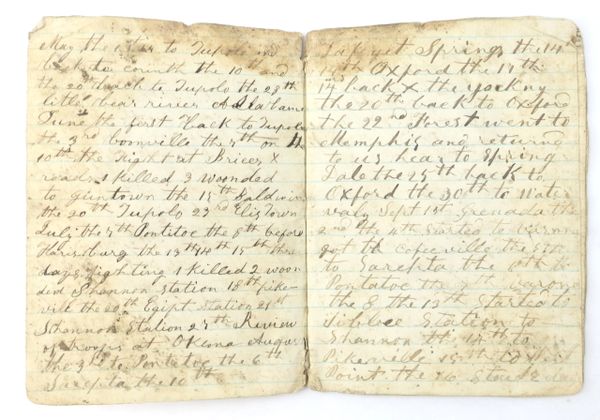 May the 1st to Tupelo and
back to corinth the 10th and
the 20th back to Tupelo the 28th
little bear river Alabama
June the first back to Tupelo
the 3rd boonville the 7th on the
10th the Fight at Brices X
roads 1 killed 3 woonded
to guntown the 15th Baldwin
the 20th Tupolo 23rd Elistown
Juli the 7th Pontitoc the 8th before
Harisburg the 13th 14th 15th three
days fighting 1 killed 2 woon
ded Shannon Station 18th Pike-
vill the 20th Egipt Station 21st
Shannon Station 27th Review
of troops at Okema August
the 3rd to Pontitoc the 6th
Sarepta the 10th
Lafyet Springs the 14th
Oxford the 17th
back X the yockny
the 20th back to Oxford
the 22nd Forest went to
Memphis and returned
to us hear to Spring
Dale the 25th back to
Oxford the 30th to Water
valy Sept 1st Grenada the
2nd the 4th Started to
got to Cofeeville the 5th
to Sarepta the 6th to
Pontatoc the 7th
the 8 the 13th Started to
Station to
Shannon the 14th to
Pikeville 15th to West
Point the 16